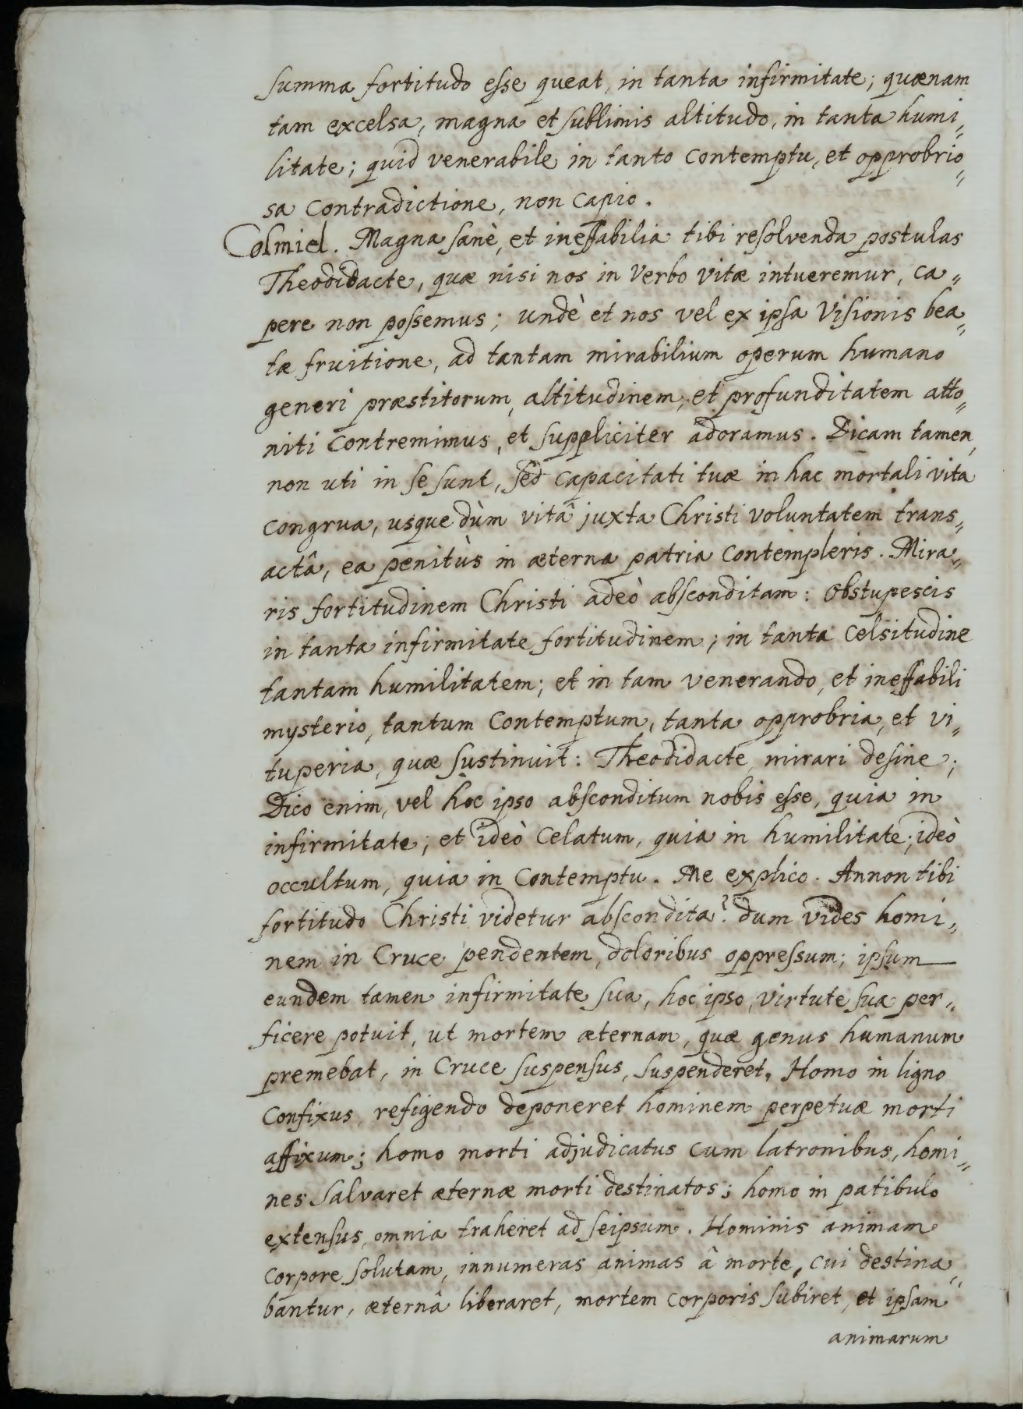 summa fortitudo esse queat, in tanta infirmitate; quænam
tam excelsa, magna et sublimis altitudo, in tanta humi„
litate; quid venerabile in tanto contemptu, et opprobrio„
sa contradictione, non capio.
Colmiel. Magna sanè, et ineffabilia tibi resolvenda postulas
Theodidacte, quæ nisi nos in Verbo vitæ intueremur, ca„
pere non possemus; undè et nos vel ex ipsa Visionis bea„
tæ fruitione, ad tantam mirabilium operum humano
generi præstitorum, altitudinem, et profunditatem atto„
niti contremimus, et suppliciter adoramus. Dicam tamen,
non uti in se sunt, sed capacitati tuæ in hac mortali vita
congrua, usque dùm vitâ juxta Christi voluntatem trans„
actâ, ea penitùs in æterna patria contempleris. Mira„
ris fortitudinem Christi adeò absconditam: Obstupescis
in tanta infirmitate fortitudinem; in tanta celsitudine
tantam humilitatem; et in tam venerando, et ineffabili
mysterio, tantum contemptum, tanta opprobria, et vi„
tuperia, quæ sustinuit: Theodidacte, mirari desine;
Dico enim, vel hoc ipso absconditum nobis esse, quia in
infirmitate; et ideò celatum, quia in humilitate; ideò
occultum, quia in contemptu. Me explico. Annon tibi
fortitudo Christi videtur abscondita? dum vides homi„
nem in Cruce pendentem, doloribus oppressum; ipsum
eundem tamen infirmitate sua, hoc ipso, virtute sua per„
ficere potuit, ut mortem æternam, quæ genus humanum
premebat, in Cruce suspensus, suspenderet. Homo in ligno
confixus, refigendo deponeret hominem perpetuæ morti
affixum; homo morti adjudicatus cum latronibus, homi„
nes salvaret æternæ morti destinatos; homo in patibulo
extensus, omnia traheret ad seipsum. Hominis animam
corpore solutam, innumeras animas â morte, cui destina„
bantur, æternâ liberaret, mortem corporis subiret, et ipsam
animarum